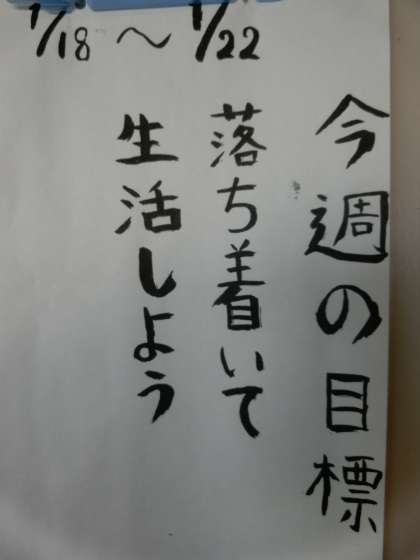 1/18〜1/22
今週の目標
落ち着いて
生活しよう